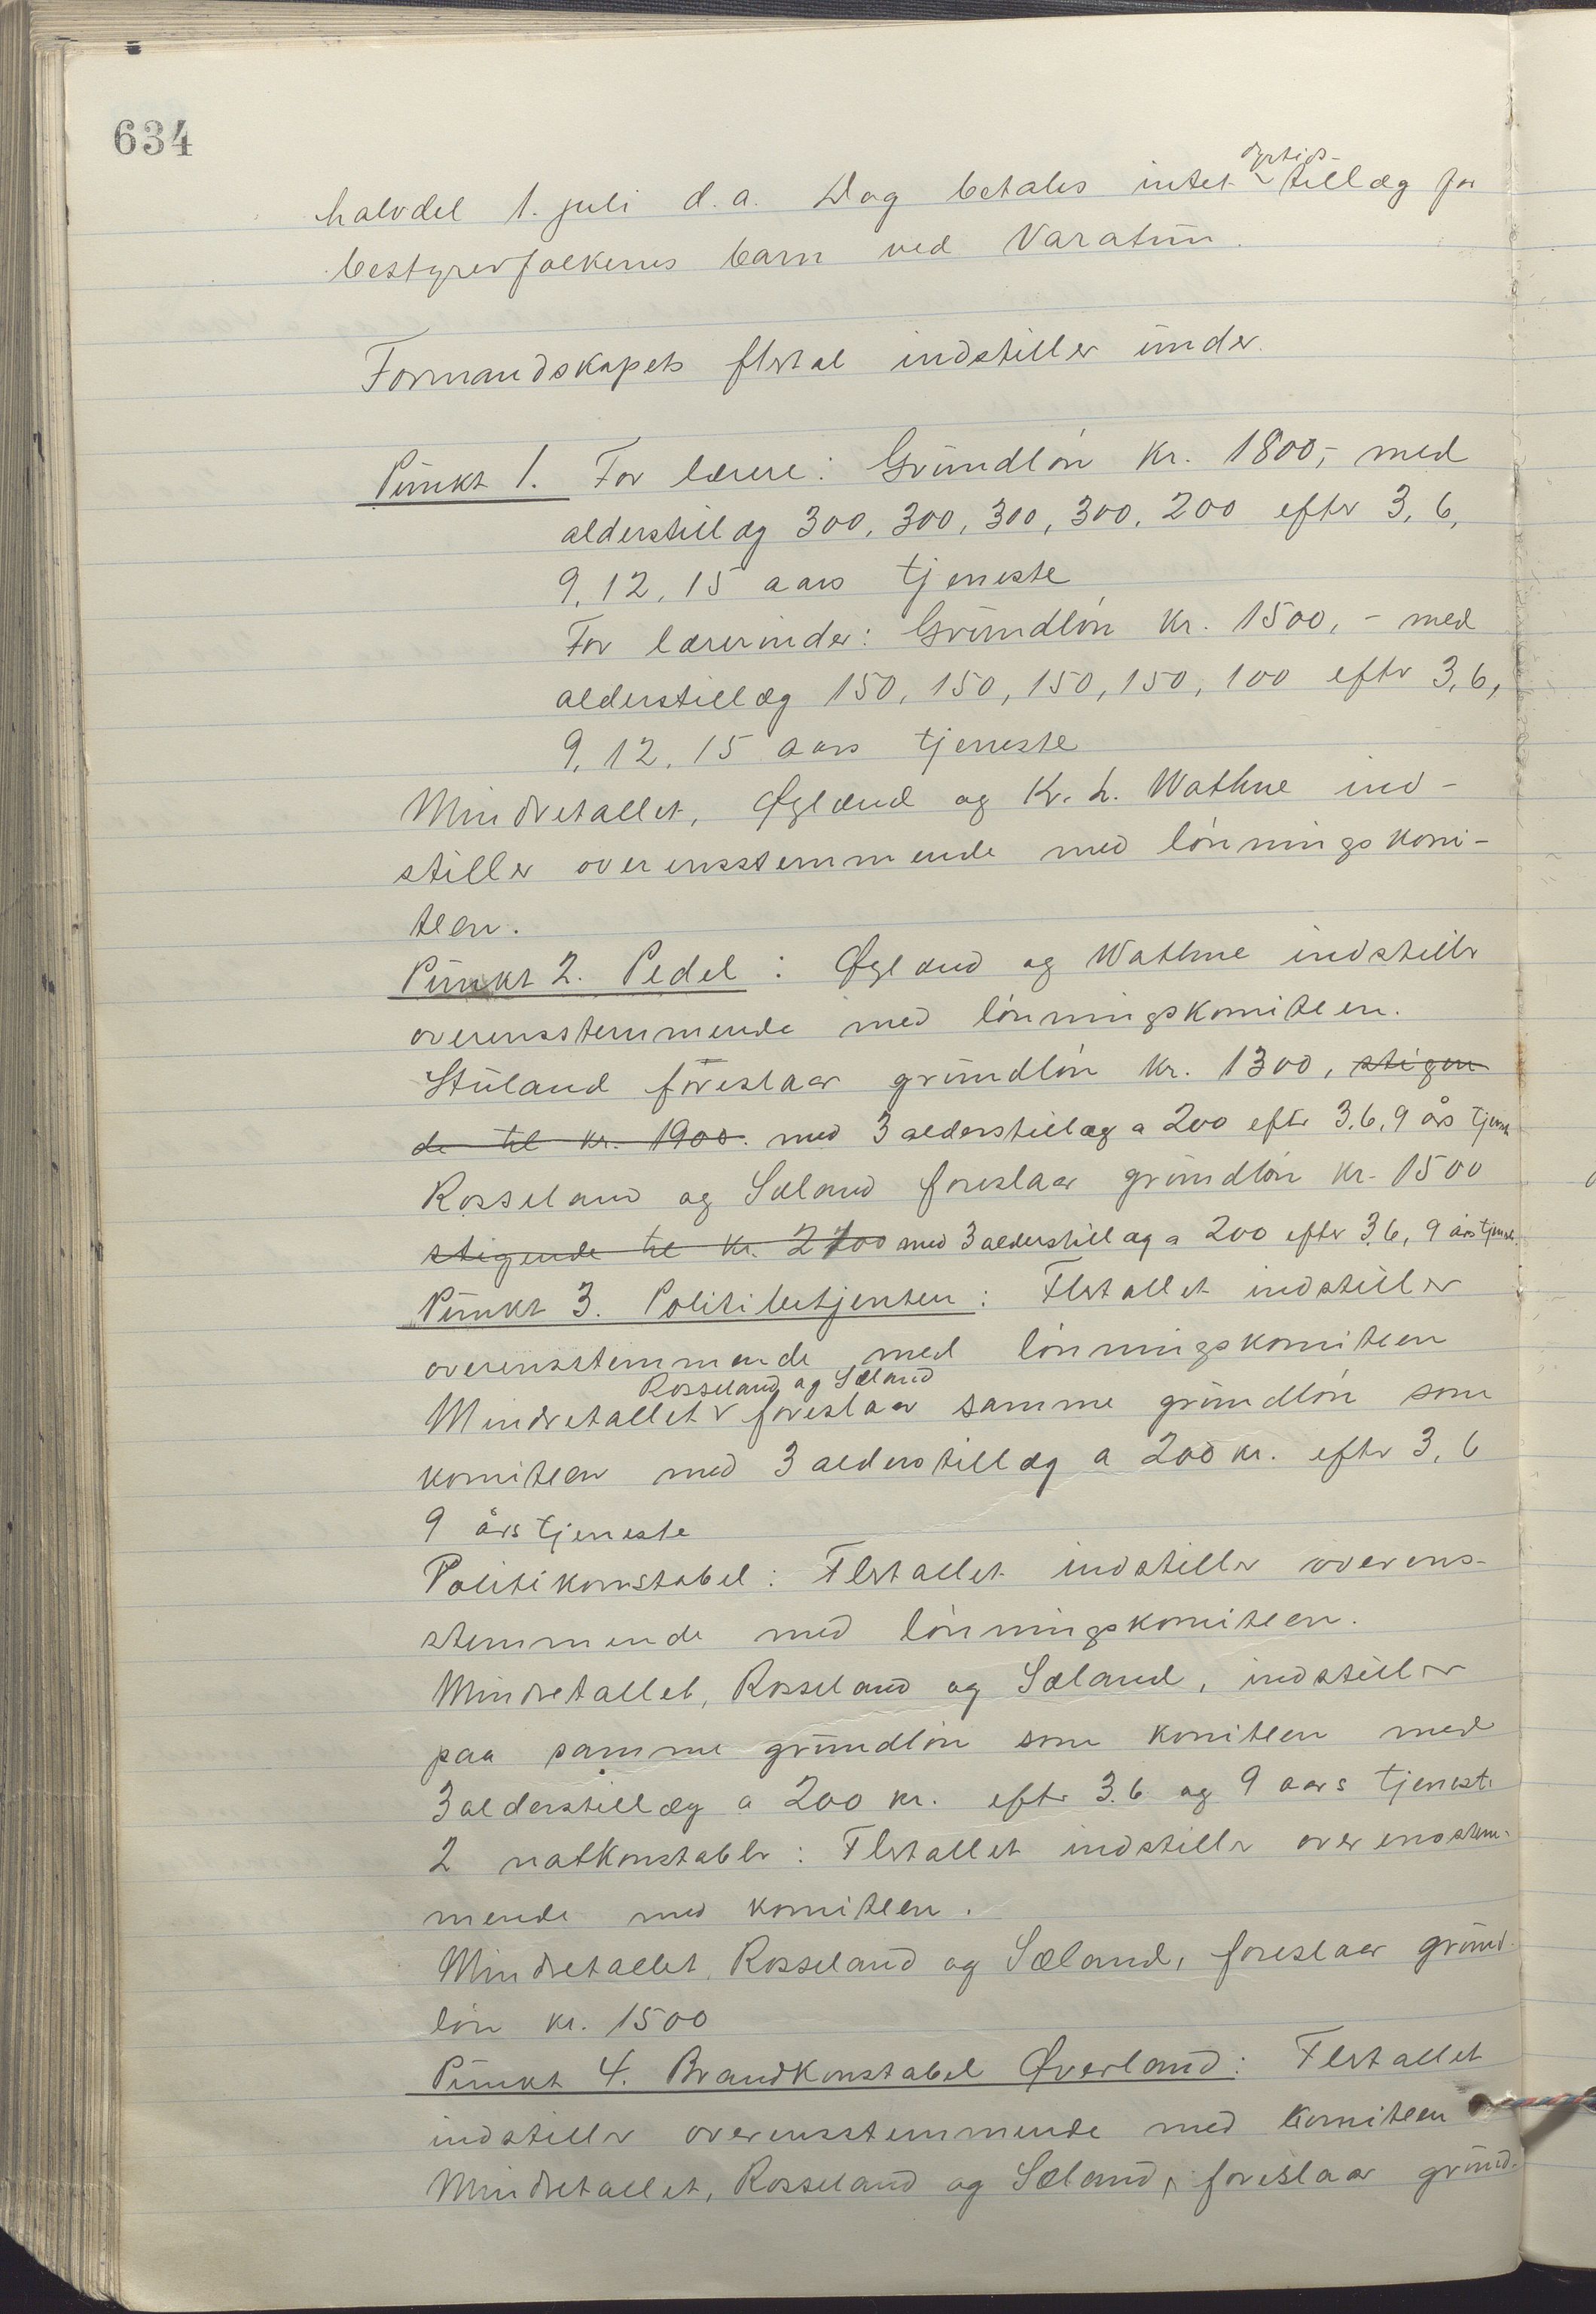 634
halvdel 1. juli d.a. Dog betales intet dyrtids-tillæg for
bestyrerfolkenes barn ved Varatun.
Formandskapets flertal indstiller under.
Punkt 1. For lærere: Grundløn kr. 1800,- med
alderstillæg 300, 300, 300, 300, 200 efter 3, 6,
9, 12, 15 aars tjeneste
For lærerinder: Grundløn kr. 1500,- med
alderstillæg 150, 150, 150, 150, 100 efter 3, 6,
9, 12, 15 aars tjeneste
Mindretallet, Øglænd og Kr. L. Wathne ind-
stiller overensstemmende med lønningskomi-
teen.
Punkt 2. Pedel: Øglænd og Wathne indstiller
overensstemmende med lønningskomiteen.
Stuland foreslaar grundløn kr. 1300, stigen
de til kr. 1900. med 3 alderstillæg a 200 efter 3, 6, 9 års tjeneste
Rosseland og Sæland foreslaar grundløn kr. 1500
stigende til kr. 2100 med 3 alderstillæg a 200 efter 3, 6, 9 års tjeneste.
Punkt 3. Politibetjenten: Flertallet indstiller
overensstemmende med lønningskomiteen
Rosseland og Sæland
Mindretallet foreslaar samme grundløn som
komiteen med 3 alderstillæg a 200 kr. efter 3, 6
9 års tjeneste
Politikonstabel: Flertallet indstiller overens-
stemmende med lønningskomiteen.
Mindretallet, Rosseland og Sæland, indstiller
paa samme grundløn som komiteen med
3 alderstillæg a 200 kr. efter 3. 6 og 9 aars tjeneste
2 natkonstabler: Flertallet indstiller overensstem-
mende med komiteen.
Mindretallet, Rosseland og Sæland, foreslaar grund-
løn kr. 1500
Punkt 4. Brandkonstabel Øverland: Flertallet
indstiller overensstemmende med komiteen
Mindretallet, Rosseland og Sæland, foreslaar grund-